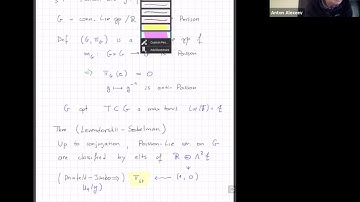 G = conn. Lie gp /R Poisson
Def (G, π_G) is a gp if
m_G : G × G → G Poisson
⇒ π_G(e) = 0
g ↦ g⁻¹ is anti-Poisson
G cpt T ⊂ G a max torus Lie(T) = t
Thm (Levendorskii-Soibelman)
Up to conjugation, Poisson-Lie str. on G
are classified by elts of R ⊕ Λ² t
(Drinfeld-Jimbo ⇒) π_st ↔ (1, 0)
Anton Alexeev